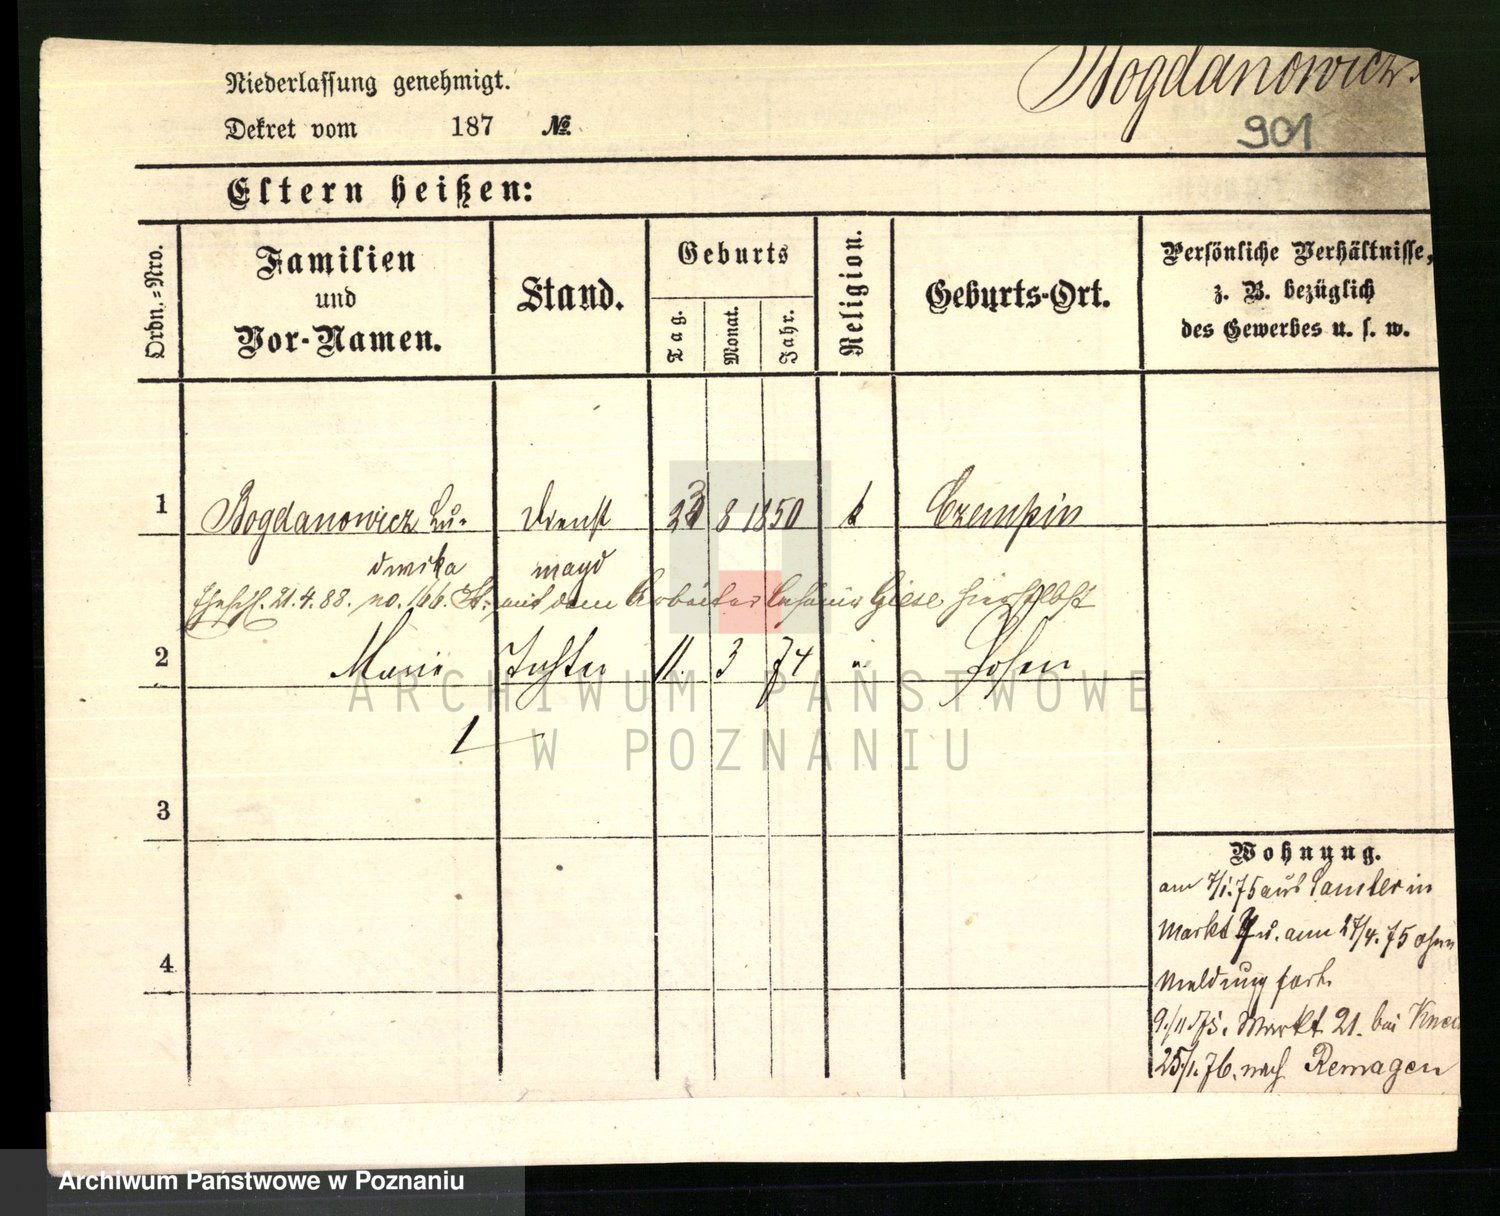 Niederlassung genehmigt.
Bogdanowicz.
Dekret vom 187 №
901
Eltern heißen:
Ordn.=Nro.
Familien
und
Vor-Namen.
Stand.
Geburts
Tag.
Monat.
Jahr.
Religion.
Geburts-Ort.
Persönliche Verhältnisse,
z. B. bezüglich
des Gewerbes u. s. w.
1 Bogdanowicz Lu- Dienst 23 8 1850 k Czempin
dwika magd
Ehesch. 21.4.88. no. 166. St. mit dem Arbeiter Casimir Giese hierselbst
2 Marie Tochter 11 3 74 " Posen
1
3
4
Wohnung.
am 7/1.75 aus Samter in
Markt 7 u. am 27/4.75 ohne
Meldung fort.
9./11.75. Markt 21. bei
25/1.76. nach Remagen
ARCHIWUM PAŃSTWOWE
W POZNANIU
Archiwum Państwowe w Poznaniu